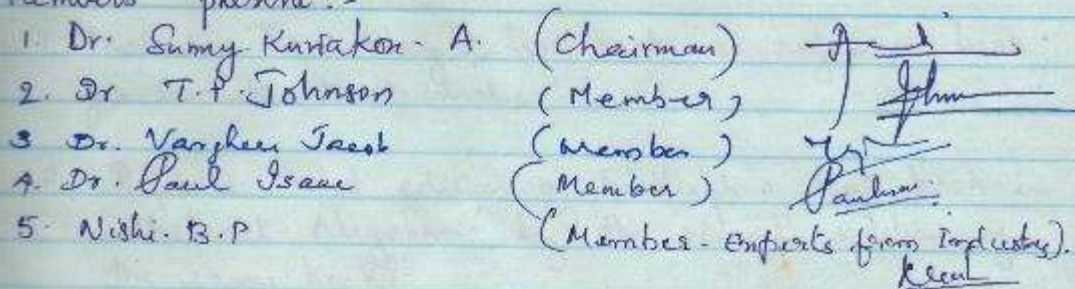 Members present :-
1. Dr. Sunny Kuriakose. A. (Chairman)
2. Dr T.P. Johnson (Member)
3 Dr. Varghese Jacob (member)
4. Dr. Paul Isaac (Member)
5. Nishi. B.P (Member - Experts from Industry).